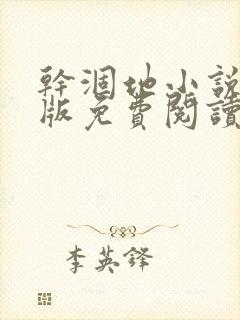 幹涸地小説
版免費閱讀
李英鋒